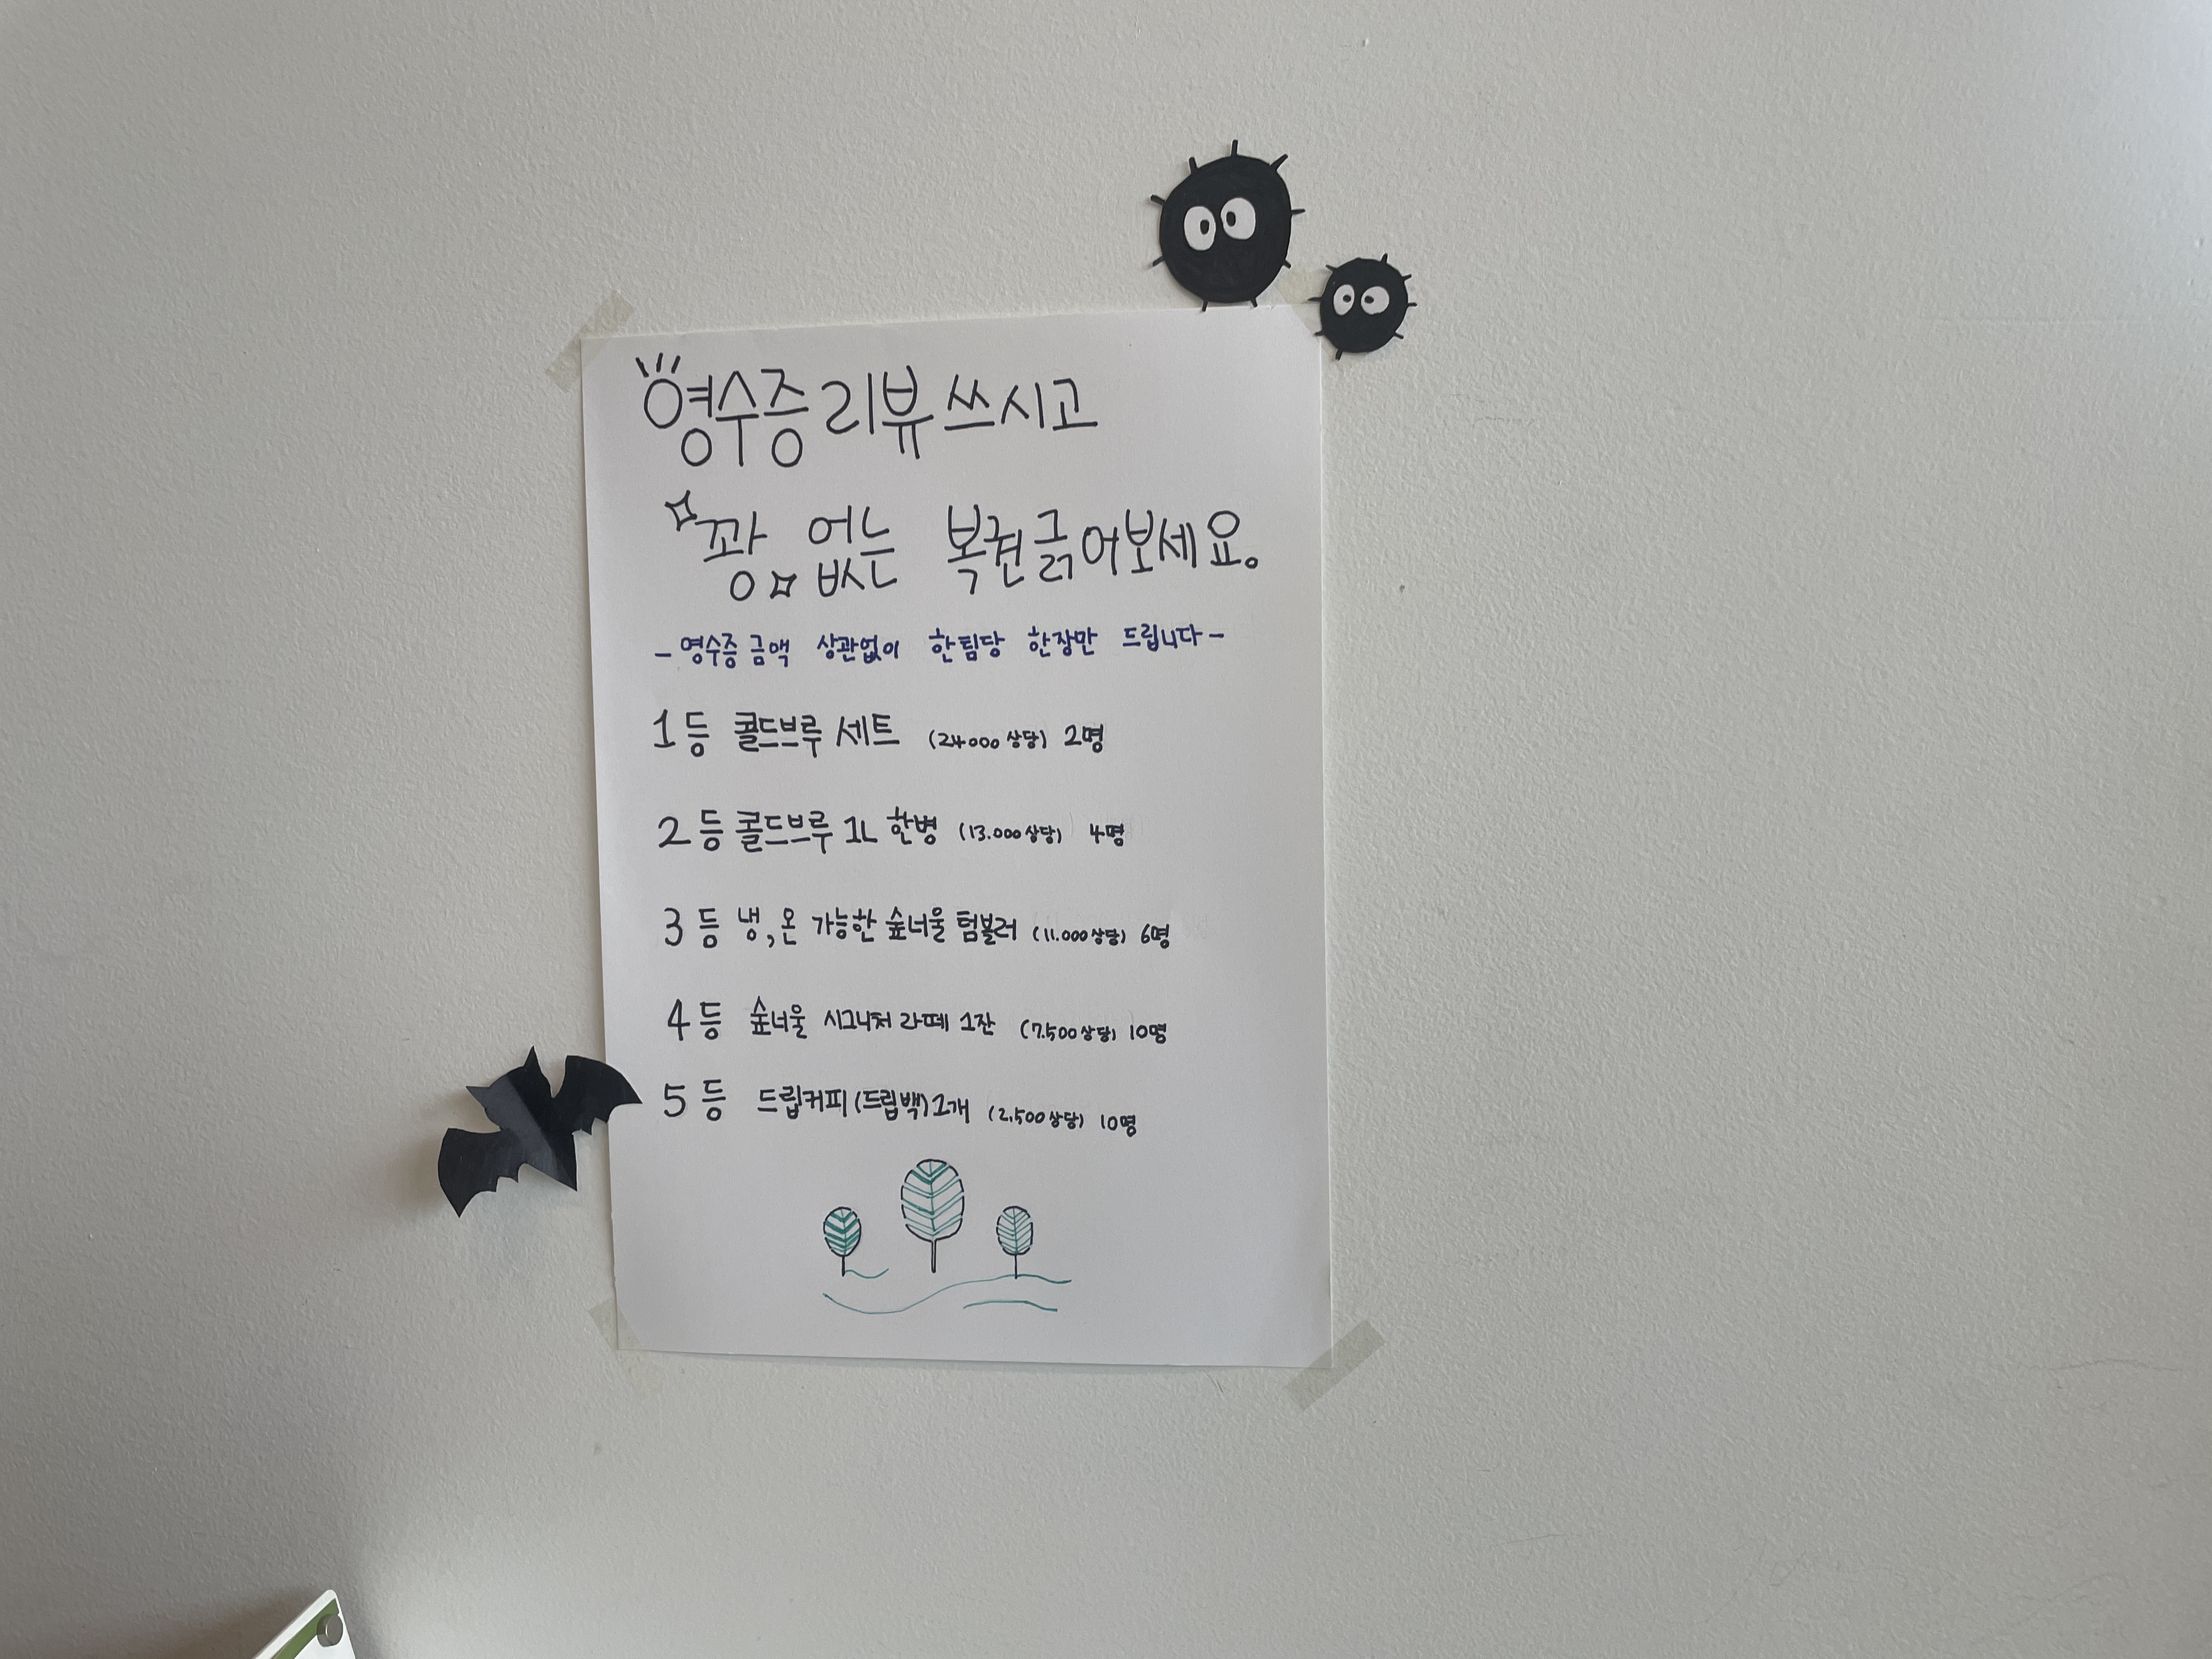 영수증 리뷰 쓰시고
꽝 없는 복권 긁어보세요.
- 영수증 금액 상관없이 한팀당 한장만 드립니다 -
1등 콜드브루 세트 (24000 상당) 2명
2등 콜드브루 1L 한병 (13.000 상당) 4명
3등 냉,온 가능한 숲너울 텀블러 (11.000 상당) 6명
4등 숲너울 시그니처 라떼 1잔 (7.500 상당) 10명
5등 드립커피(드립백)1개 (2.500 상당) 10명